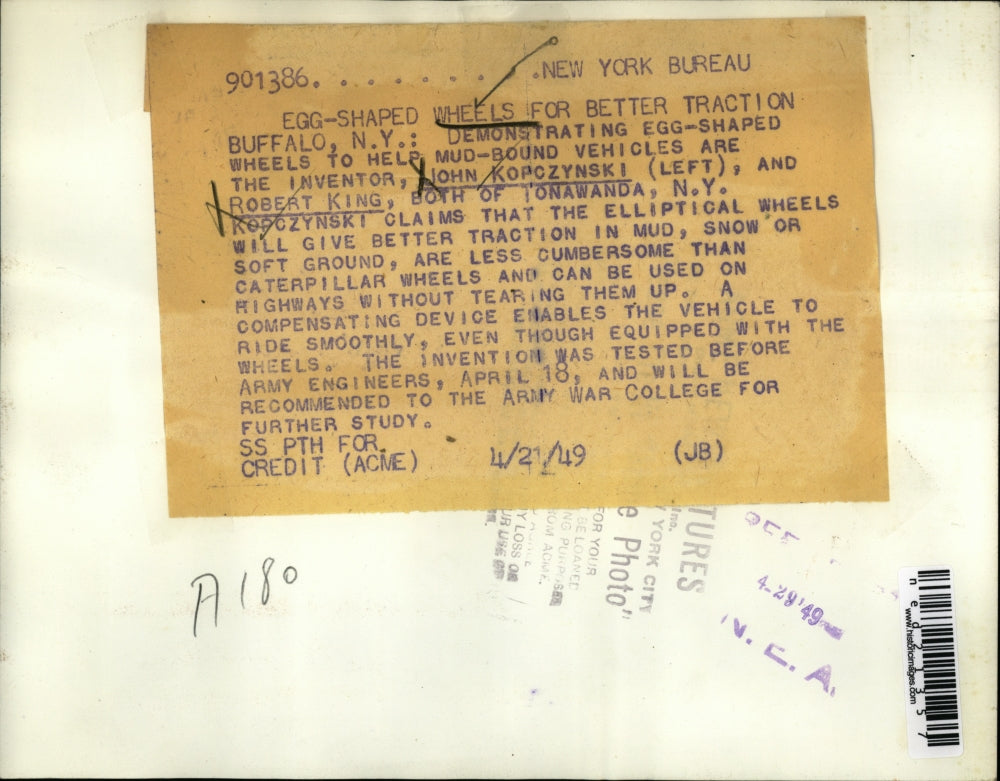 901386. . . . . . . . . .NEW YORK BUREAU
EGG-SHAPED WHEELS FOR BETTER TRACTION
BUFFALO, N.Y.: DEMONSTRATING EGG-SHAPED
WHEELS TO HELP MUD-BOUND VEHICLES ARE
THE INVENTOR, JOHN KOPCZYNSKI (LEFT), AND
ROBERT KING, BOTH OF TONAWANDA, N.Y.
KOPCZYNSKI CLAIMS THAT THE ELLIPTICAL WHEELS
WILL GIVE BETTER TRACTION IN MUD, SNOW OR
SOFT GROUND, ARE LESS CUMBERSOME THAN
CATERPILLAR WHEELS AND CAN BE USED ON
HIGHWAYS WITHOUT TEARING THEM UP. A
COMPENSATING DEVICE ENABLES THE VEHICLE TO
RIDE SMOOTHLY, EVEN THOUGH EQUIPPED WITH THE
WHEELS. THE INVENTION WAS TESTED BEFORE
ARMY ENGINEERS, APRIL 18, AND WILL BE
RECOMMENDED TO THE ARMY WAR COLLEGE FOR
FURTHER STUDY.
SS PTH FOR
CREDIT (ACME) 4/21/49 (JB)
A180
TURES
Inc.
YORK CITY
e Photo"
FOR YOUR
BE LOANED
NG PURPOSES
OM ACME.
Y LOSS OR
UR USE OF
4-29'49
N.E.A.
ned21357
www.historicimages.com